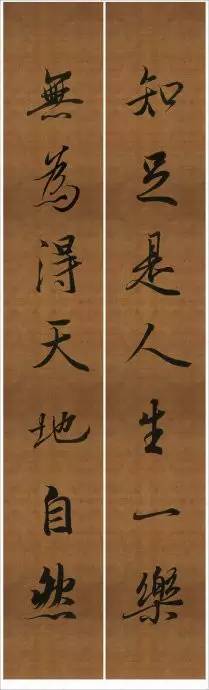 知足是人生一樂
無為得天地自然